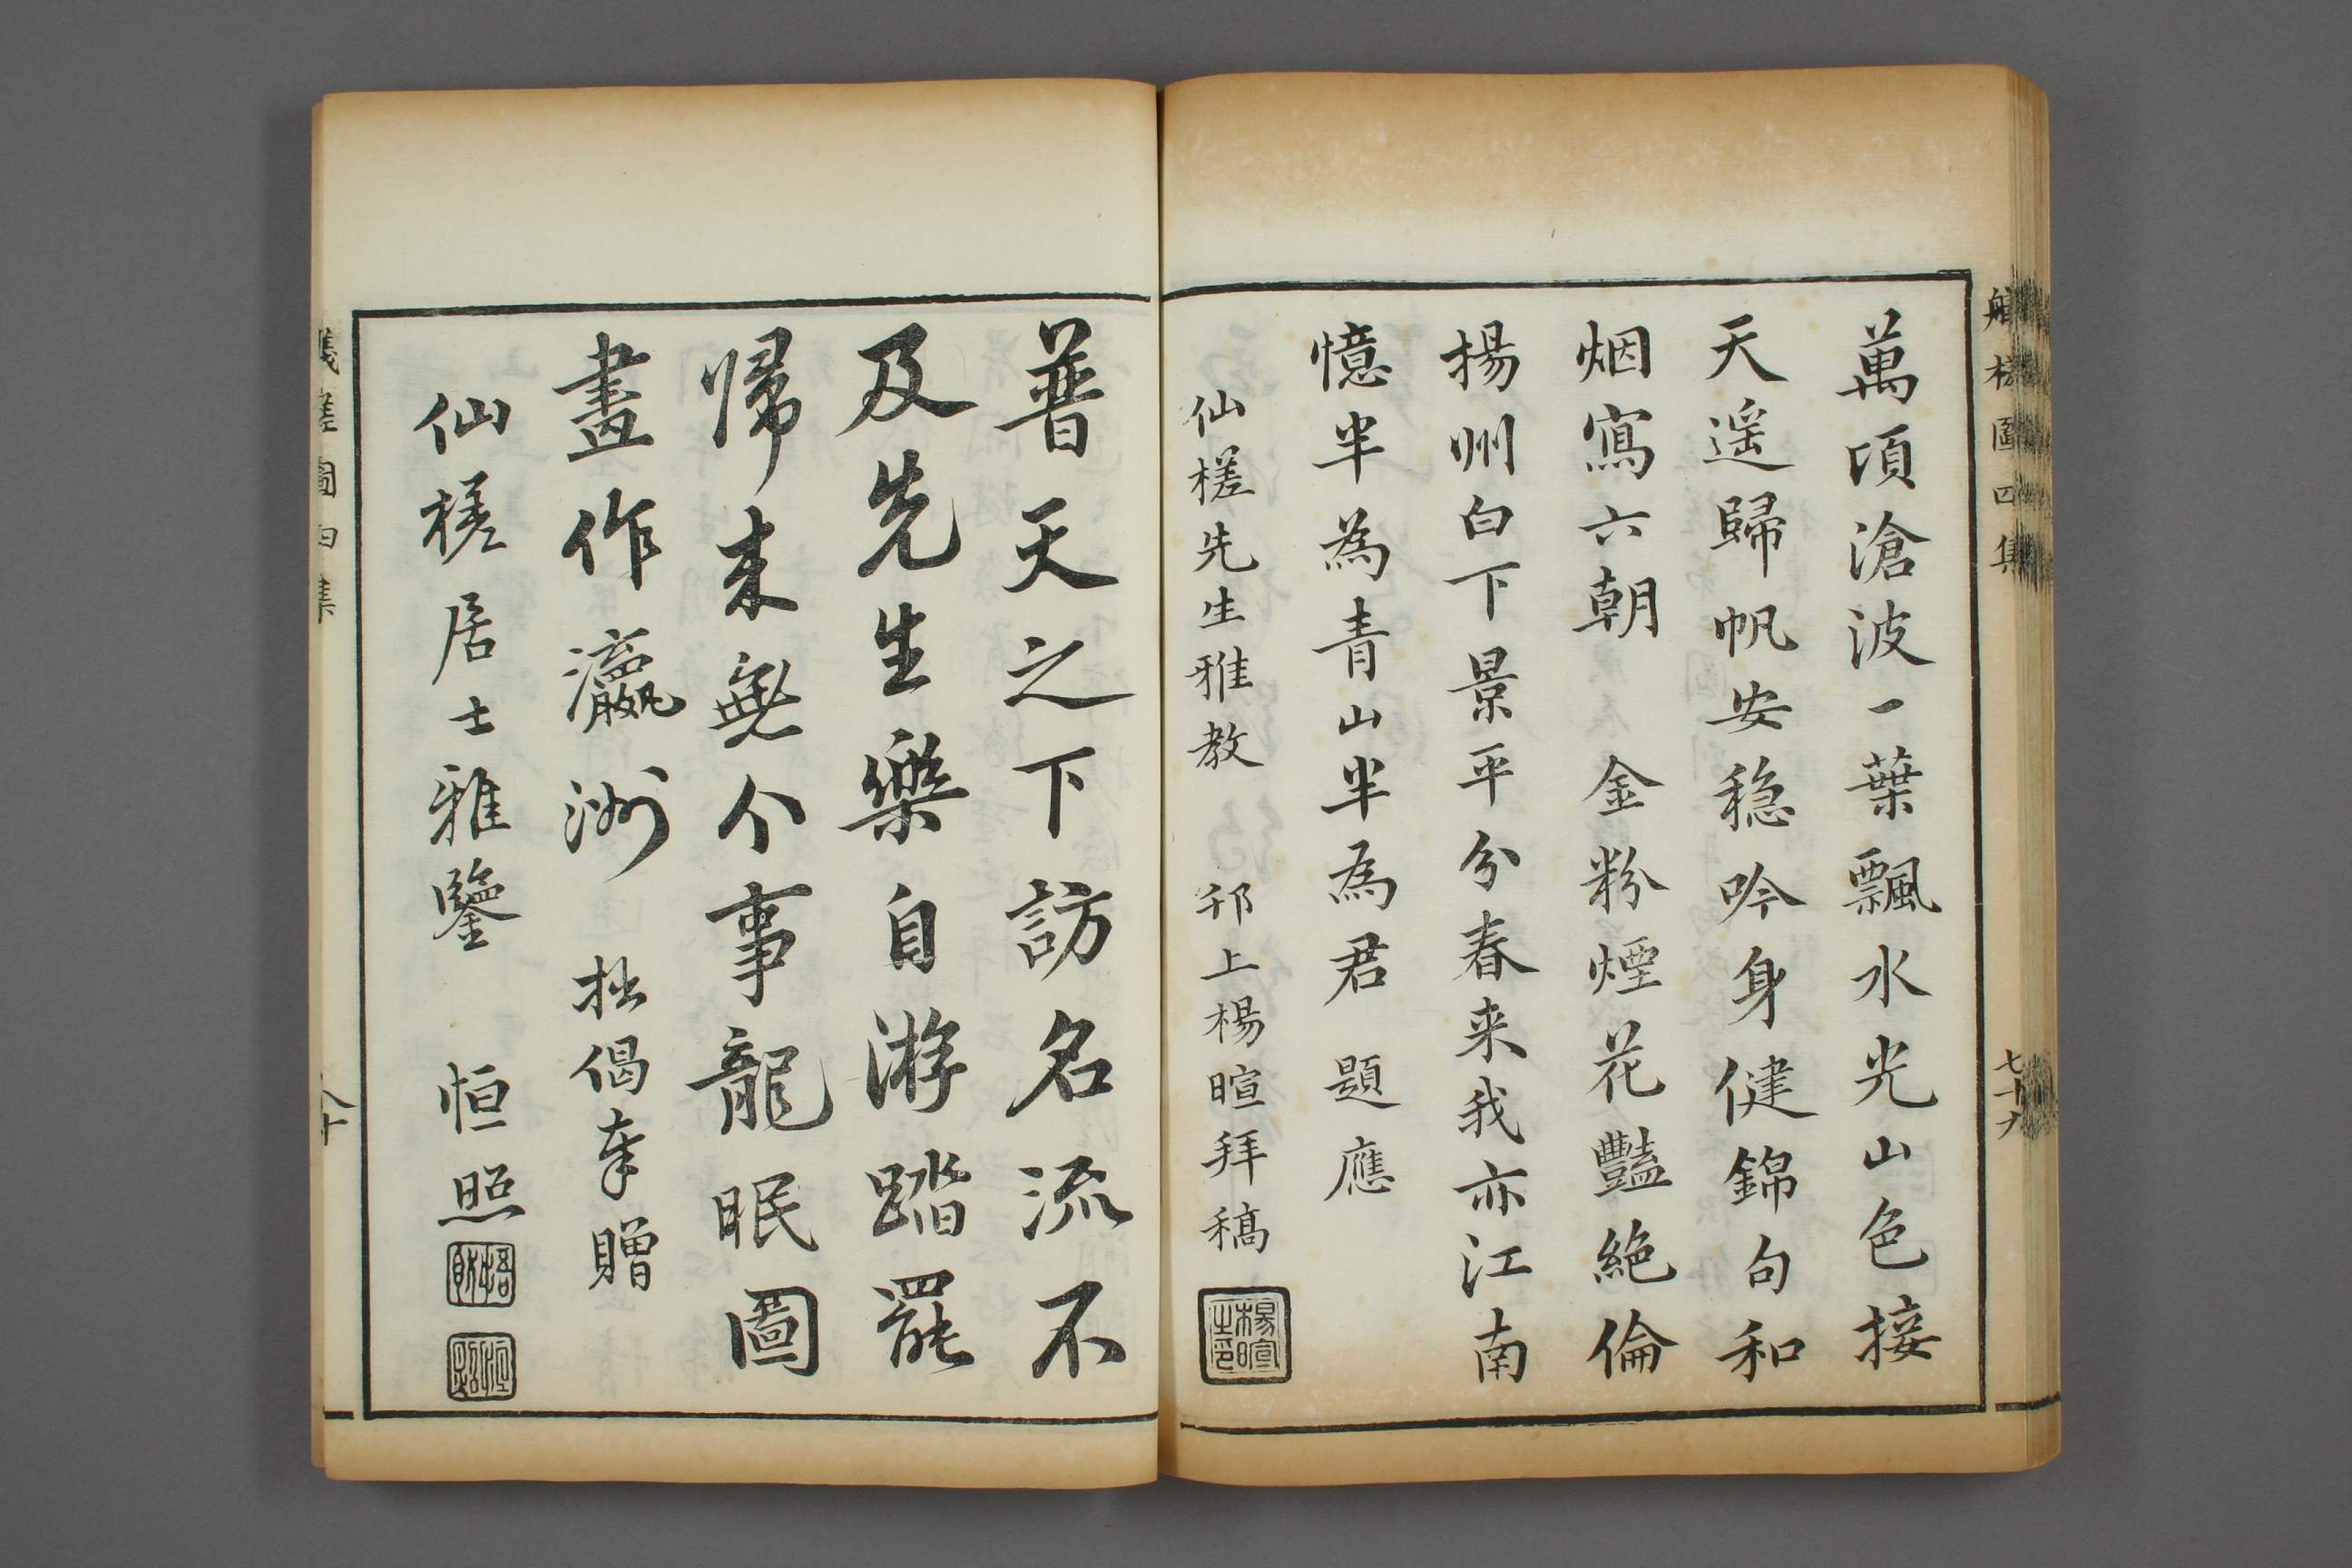 艤槎圖四集
七十九
萬頃滄波一葉飄水光山色接
天遥歸帆安穏吟身健錦句和
烟寫六朝　金粉煙花豔絶倫
揚州白下景平分春来我亦江南
憶半為青山半為君　題應
仙槎先生雅教　邗上楊暄拜稿
楊暄之印
普天之下訪名流不
及先生樂自游踏罷
歸来無个事龍眠圖
畫作瀛洲　拙偈奉贈
仙槎居士雅鑒　恒照
艤槎圖四集
八十